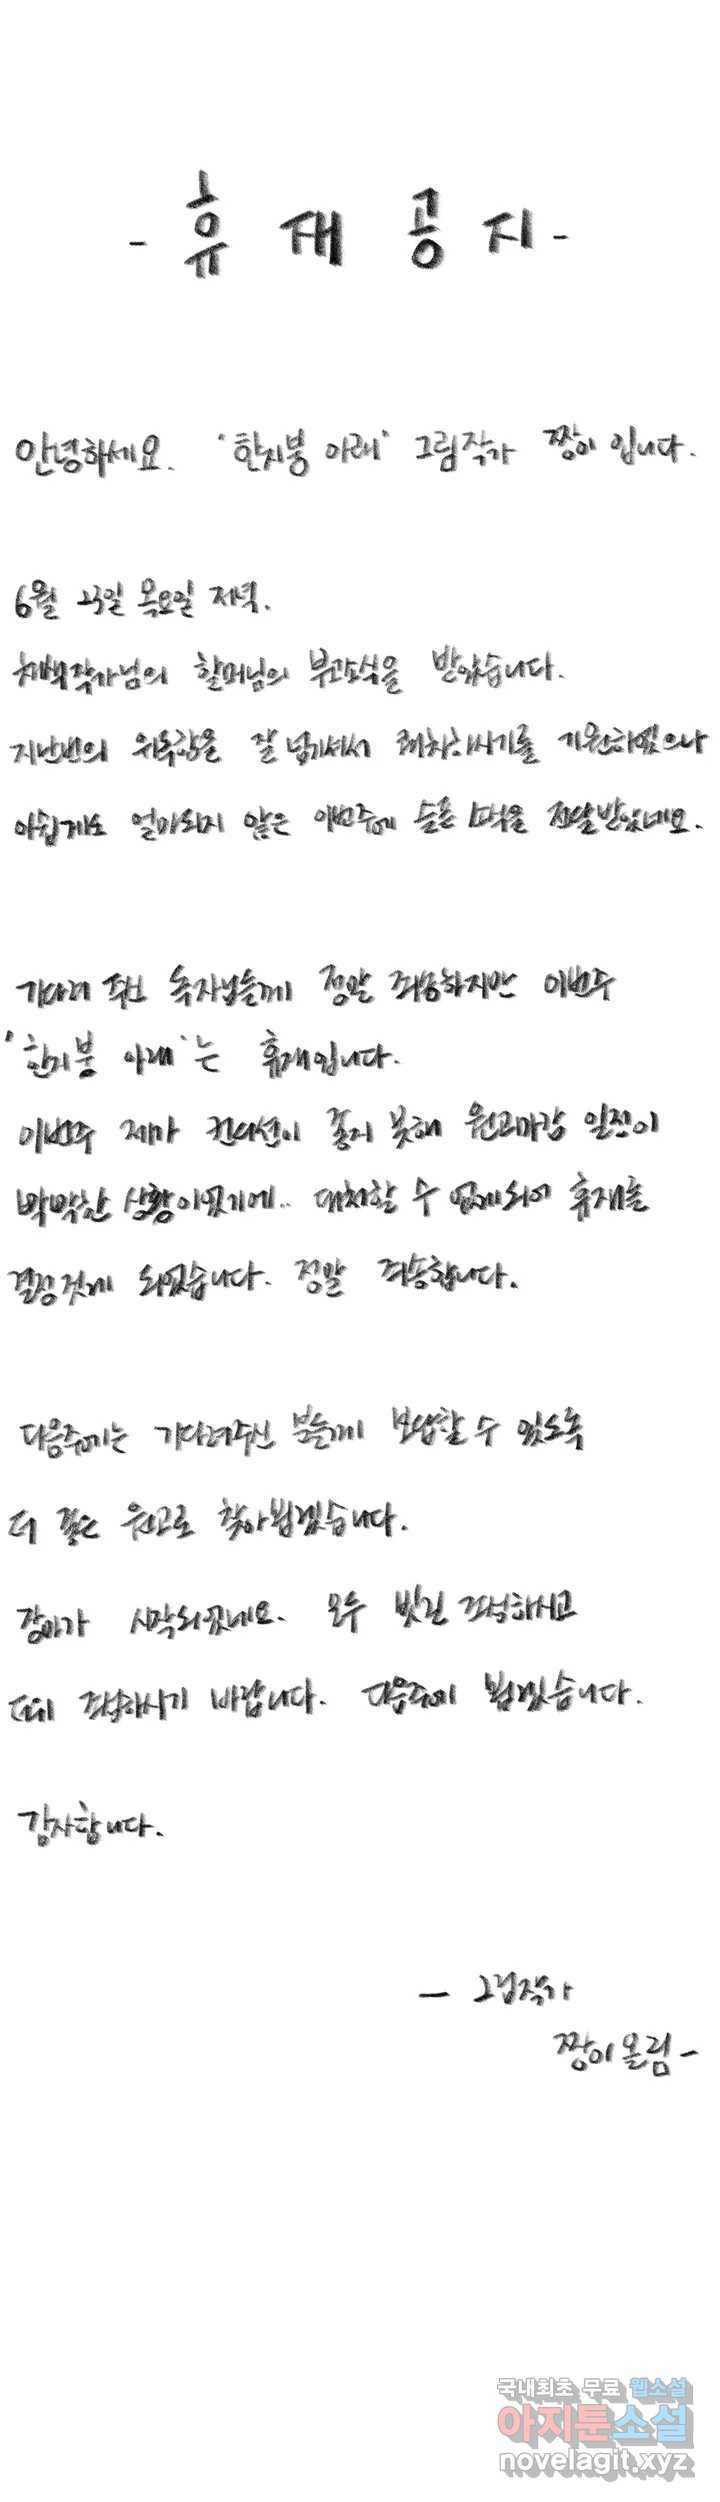 - 휴 재 공 지 -
안녕하세요. '한지붕 아래' 그림작가 짱이 입니다.
6월 일 목요일 저녁.
작가님의 할머님의 부고소식을 받았습니다.
지난번의 위독함을 잘 넘기셔서 쾌차하시기를 기원하였으나
아쉽게도 얼마되지 않은 이번주에 슬픈 소식을 전달받았네요.
기다려 주신 독자님들께 정말 죄송하지만 이번주
'한지붕 아래'는 휴재입니다.
이번주 제가 컨디션이 좋지 못해 원고마감 일정이
빡빡한 상황이었기에.. 대처할 수 없게되어 휴재를
결정짓게 되었습니다. 정말 죄송합니다.
다음주에는 기다려주신 분들께 보답할 수 있도록
더 좋은 원고로 찾아뵙겠습니다.
장마가 시작되었네요. 모두 빗길 조심하시고
조심하시기 바랍니다. 다음주에 뵙겠습니다.
감사합니다.
- 그림작가
짱이 올림 -
국내최초 무료 웹소설
아지툰소설
novelagit.xyz